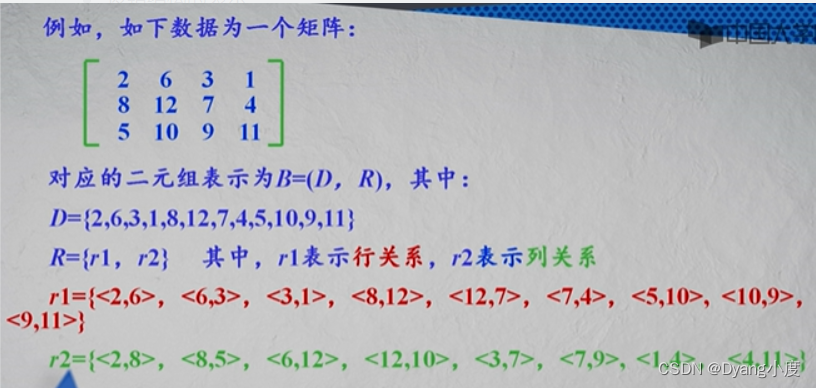 例如，如下数据为一个矩阵：
2 6 3 1
8 12 7 4
5 10 9 11
对应的二元组表示为B=(D，R)，其中：
D={2,6,3,1,8,12,7,4,5,10,9,11}
R={r1，r2} 其中，r1表示行关系，r2表示列关系
r1={<2,6>，<6,3>，<3,1>，<8,12>，<12,7>，<7,4>，<5,10>, <10,9>，
<9,11>}
r2={<2,8>，<8,5>，<6,12>，<12,10>，<3,7>，<7,9>, <1,4>，<4,11>}
中国大学
CSDN @Dyang小度